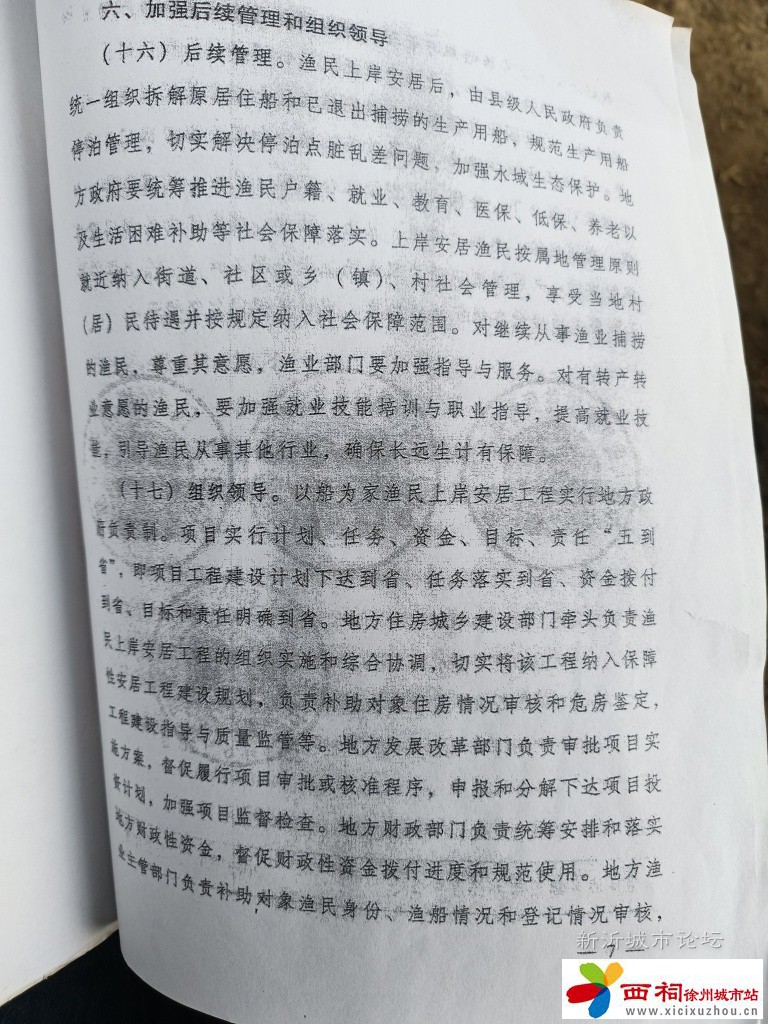 六、加强后续管理和组织领导
（十六）后续管理。渔民上岸安居后，由县级人民政府负责
统一组织拆解原居住船和已退出捕捞的生产用船，规范生产用船
停泊管理，切实解决停泊点脏乱差问题，加强水域生态保护。地
方政府要统筹推进渔民户籍、就业、教育、医保、低保、养老以
及生活困难补助等社会保障落实。上岸安居渔民按属地管理原则
就近纳入街道、社区或乡（镇）、村社会管理，享受当地村
（居）民待遇并按规定纳入社会保障范围。对继续从事渔业捕捞
的渔民，尊重其意愿，渔业部门要加强指导与服务。对有转产转
业意愿的渔民，要加强就业技能培训与职业指导，提高就业技
能，引导渔民从事其他行业，确保长远生计有保障。
（十七）组织领导。以船为家渔民上岸安居工程实行地方政
府负责制。项目实行计划、任务、资金、目标、责任“五到
省”，即项目工程建设计划下达到省、任务落实到省、资金拨付
到省、目标和责任明确到省。地方住房城乡建设部门牵头负责渔
民上岸安居工程的组织实施和综合协调，切实将该工程纳入保障
性安居工程建设规划，负责补助对象住房情况审核和危房鉴定，
工程建设指导与质量监管等。地方发展改革部门负责审批项目实
施方案，督促履行项目审批或核准程序，申报和分解下达项目投
资计划，加强项目监督检查。地方财政部门负责统筹安排和落实
地方财政性资金，督促财政性资金拨付进度和规范使用。地方渔
业主管部门负责补助对象渔民身份、渔船情况和登记情况审核，
— 7 —
新沂城市论坛
西祠徐州城市站
www.xicixuzhou.cn